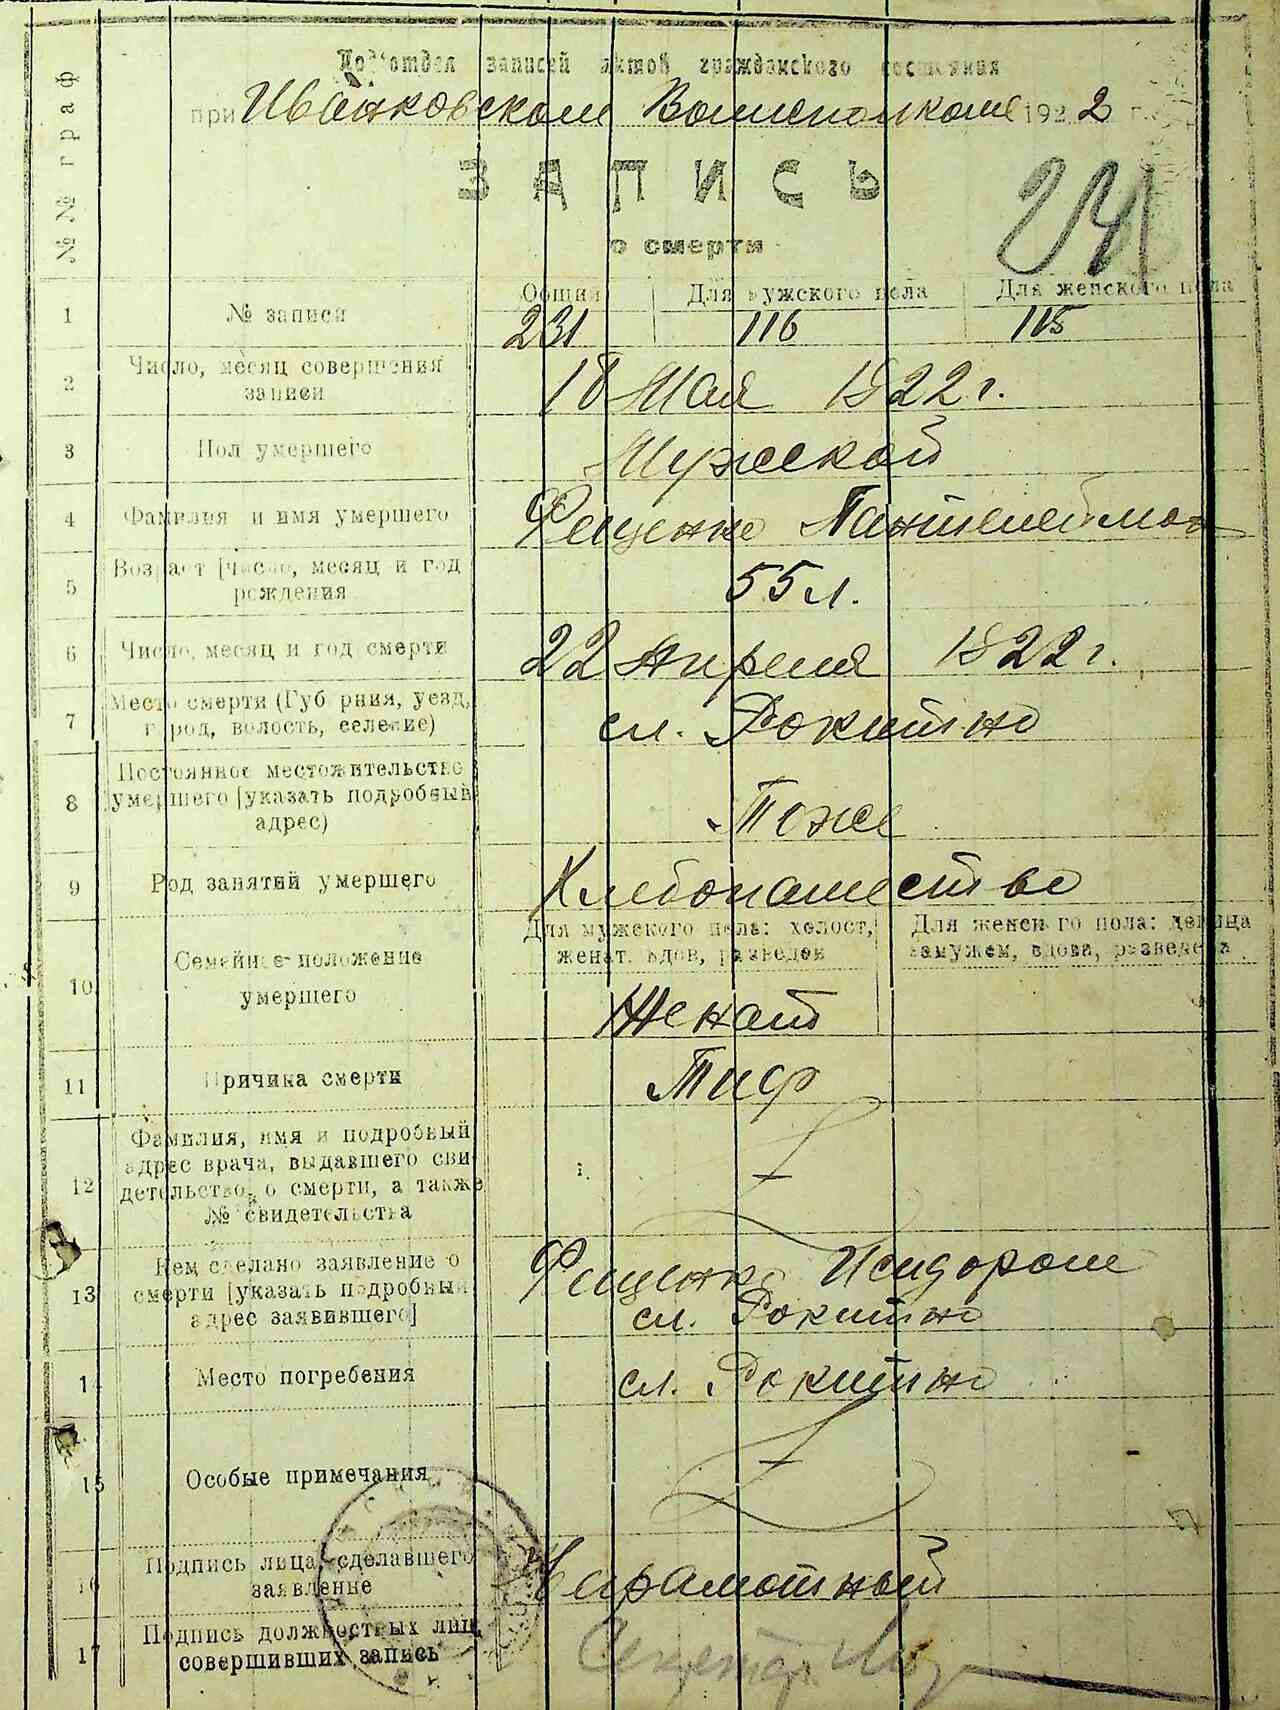 Подотдел записей актов гражданского состояния
при Иванковском Волисполкоме 1922 г.
ЗАПИСЬ
о смерти
№№ граф
1 № записи Общий Для мужского пола Для женского пола
231 116 115
2 Число, месяц совершения записи
18 Мая 1922 г.
3 Пол умершего
Мужской
4 Фамилия и имя умершего
Фещенко Пантелеймон
5 Возраст [число, месяц и год
рождения
55 л.
6 Число, месяц и год смерти
22 Апреля 1922 г.
7 Место смерти (Губерния, уезд,
город, волость, селение)
сл. Рокитно
8 Постоянное местожительство
умершего [указать подробный
адрес)
Тоже
9 Род занятий умершего
Хлебопашество
10 Семейное положение
умершего
Для мужского пола: холост,
женат, вдов, разведен
Для женского пола: девица
замужем, вдова, разведена
Женат
11 Причина смерти
Тиф
12 Фамилия, имя и подробный
адрес врача, выдавшего сви-
детельство о смерти, а также
№ свидетельства
13 Кем сделано заявление о
смерти [указать подробный
адрес заявившего]
Фещенко Исидором
сл. Рокитно
14 Место погребения
сл. Рокитно
15 Особые примечания
16 Подпись лица, сделавшего
заявление
Неграмотный
17 Подпись должностных лиц,
совершивших запись